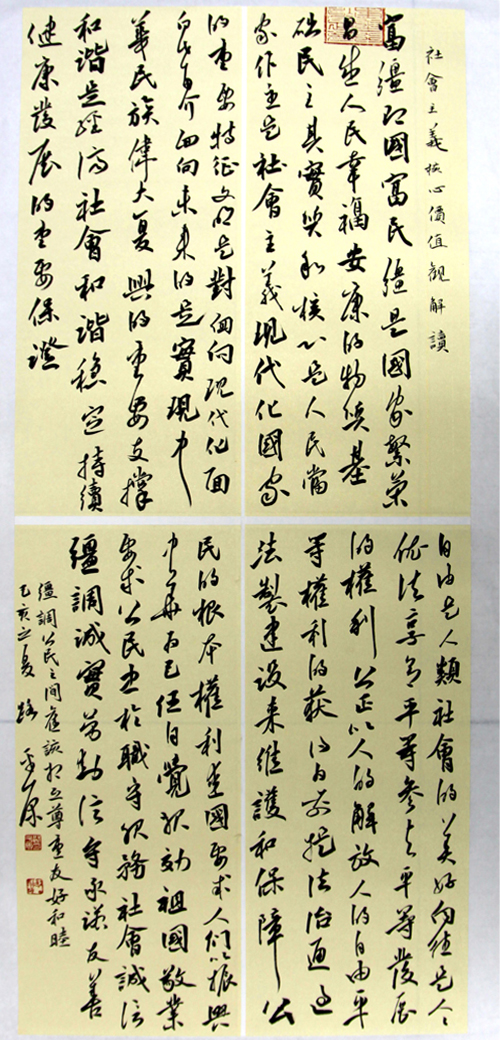 社會主義核心價值觀解讀
富彊即國富民彊是國家繁榮
昌盛人民幸福安康的物質基
礎民主其實質和核心是人民當
家作主是社會主義現代化國家
的重要特征文明是對面向現代化面
向世界面向未來的是實現中
華民族偉大复興的重要支撐
和諧是經濟社會和諧穩定持續
健康發展的重要保證
自由是人類社會的美好向往是人
依法享有平等參与平等發展
的權利公正以人的解放人的自由平
等權利的获得為前提法治通過
法製建設來維護和保障公
民的根本權利愛國要求人們以振興
中華為己任自覺報効祖國敬業
要求公民忠於職守服務社會誠信
彊調誠實勞動信守承諾友善
彊調公民之間應該相互尊重友好和睦
己亥之夏 路